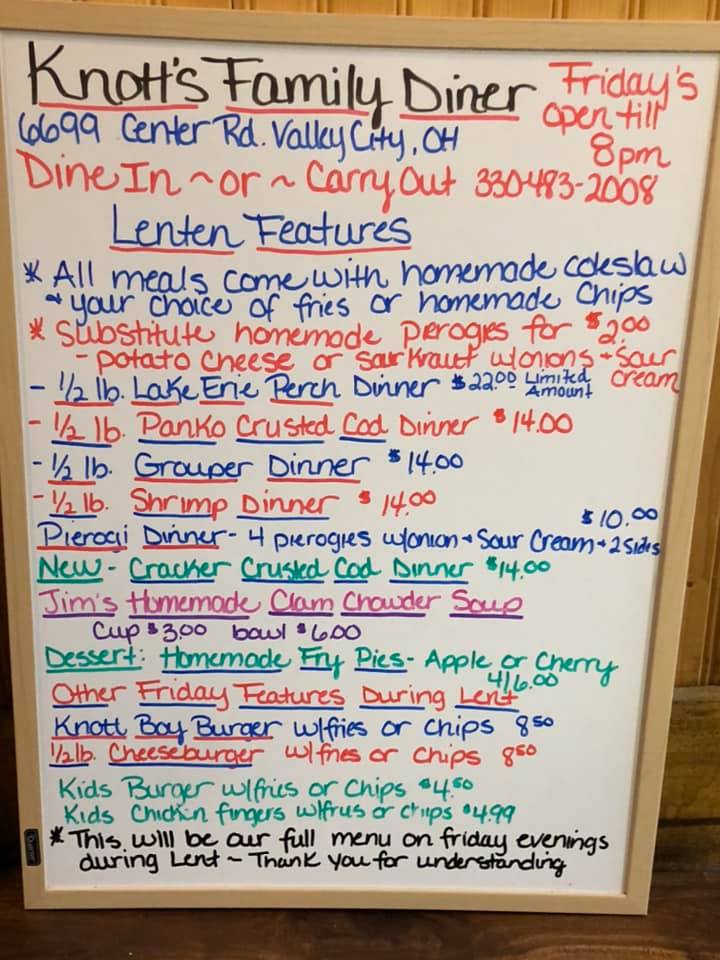 Knott's Family Diner
Friday's
open till
8pm
6699 Center Rd. Valley City, OH
Dine In ~ or ~ Carry Out 330-483-2008
Lenten Features
* All meals come with homemade coleslaw
+ your choice of fries or homemade Chips
* Substitute homemade perogies for $2.00
- potato cheese or saurkraut w/onions + Sour
cream
- 1/2 lb. Lake Erie Perch Dinner $22.00 Limited
Amount
- 1/2 lb. Panko Crusted Cod Dinner $14.00
- 1/2 lb. Grouper Dinner $14.00
- 1/2 lb. Shrimp Dinner $14.00
$10.00
Pierogi Dinner - 4 pierogies w/onion + Sour Cream + 2 sides
New - Cracker Crusted Cod Dinner $14.00
Jim's Homemade Clam Chowder Soup
Cup $3.00 bowl $6.00
Dessert: Homemade Fry Pies - Apple or Cherry
4/6.00
Other Friday Features During Lent
Knott Boy Burger w/fries or Chips 8.50
1/2 lb. Cheeseburger w/fries or Chips 8.50
Kids Burger w/fries or Chips $4.50
Kids Chicken fingers w/fries or chips $4.99
* This will be our full menu on friday evenings
during Lent ~ Thank you for understanding